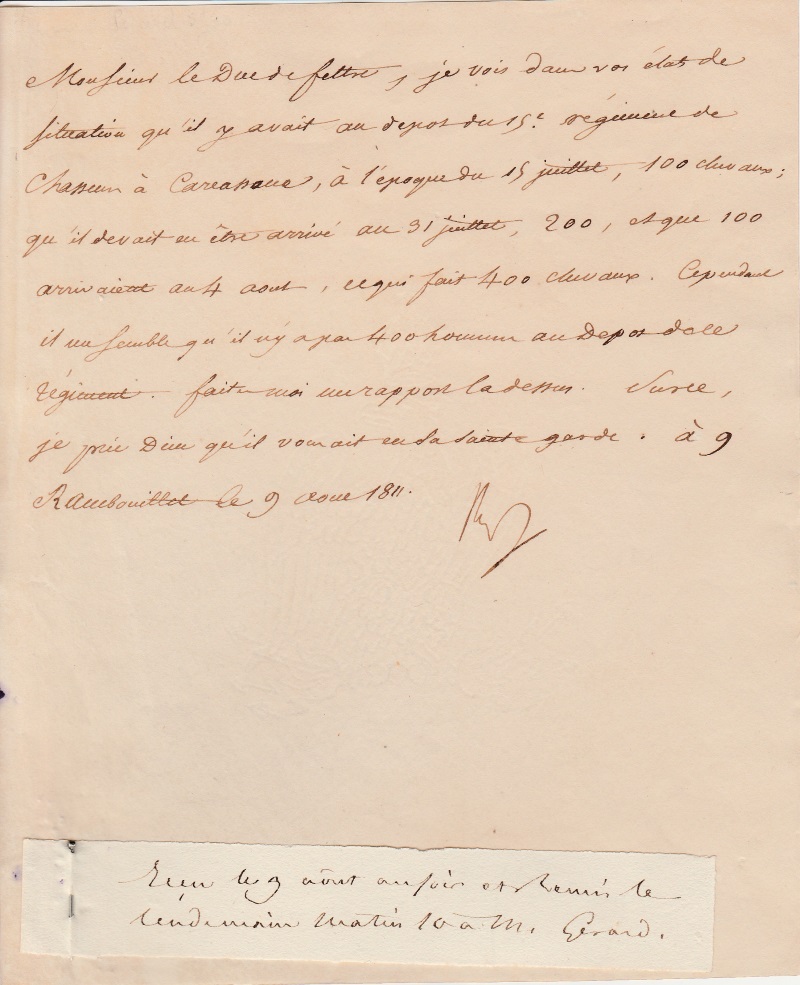 Monsieur le Duc de feltre, je vois dans vos états de
situation qu'il y avait au depot du 15e régiment de
Chasseurs à Carcassone, à l'époque du 15 juillet, 100 chevaux;
qu'il devait en être arrivé au 31 juillet, 200, et que 100
arrivaient au 4 aout, ce qui fait 400 chevaux. Cependant
il me semble qu'il n'y a pas 400 hommes au Depot de ce
régiment. faites moi un rapport la dessus. Sur ce,
je prie Dieu qu'il vous ait en sa sainte garde. à
Rambouillet le 9 aout 1811.
Reçu le 9 aôut au soir et Remis le
lendemain matin 10 à M. Gérard.